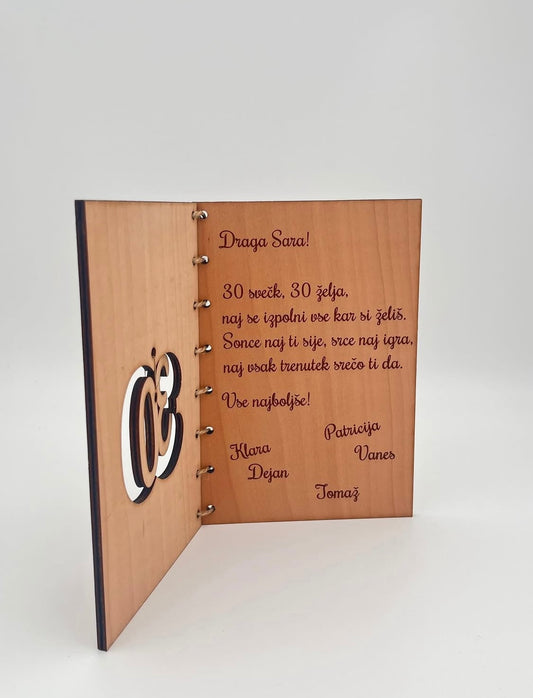 Draga Sara!
30 svečk, 30 želja,
naj se izpolni vse kar si želiš.
Sonce naj ti sije, srce naj igra,
naj vsak trenutek srečo ti da.
Vse najboljše!
Patricija
Klara
Vanes
Dejan
Tomaž
30